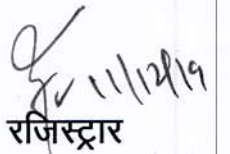 11/12/19
रजिस्ट्रार